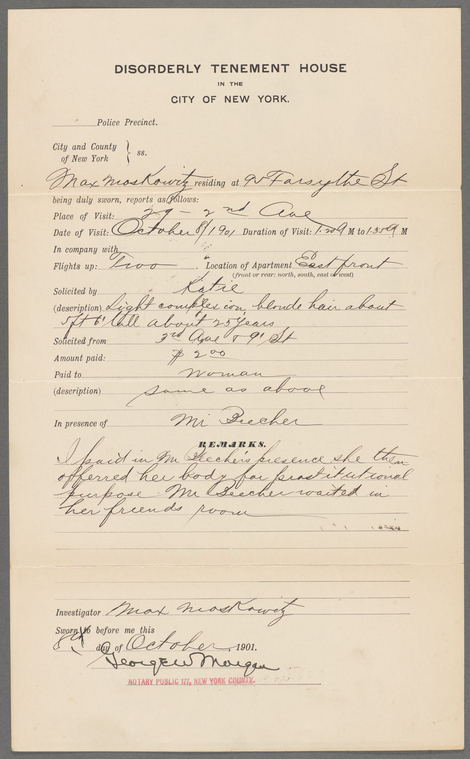 DISORDERLY TENEMENT HOUSE
IN THE
CITY OF NEW YORK.
Police Precinct.
City and County
of New York } ss.
Max Moskowitz residing at 90 Farsythe St
being duly sworn, reports as follows:
Place of Visit: 29 - 2nd Ave
Date of Visit: October 8/1901 Duration of Visit: M to M
In company with
Flights up: Two Location of Apartment East front
(front or rear: north, south, east or west)
Solicited by Katie
(description) Light complexion, blonde hair about
5ft 6" tall about 25 years
Solicited from 3rd Ave & 9" St
Amount paid: $ 2.00
Paid to woman
(description) same as above
In presence of Mr Beecher
REMARKS.
I paid in Mr Beecher's presence she then
offerred her body for prostitutional
purpose. Mr Beecher waited in
her friends room
Investigator Max Moskowitz
Sworn to before me this
8th day of October, 1901.
George W Morgan
NOTARY PUBLIC 177, NEW YORK COUNTY.